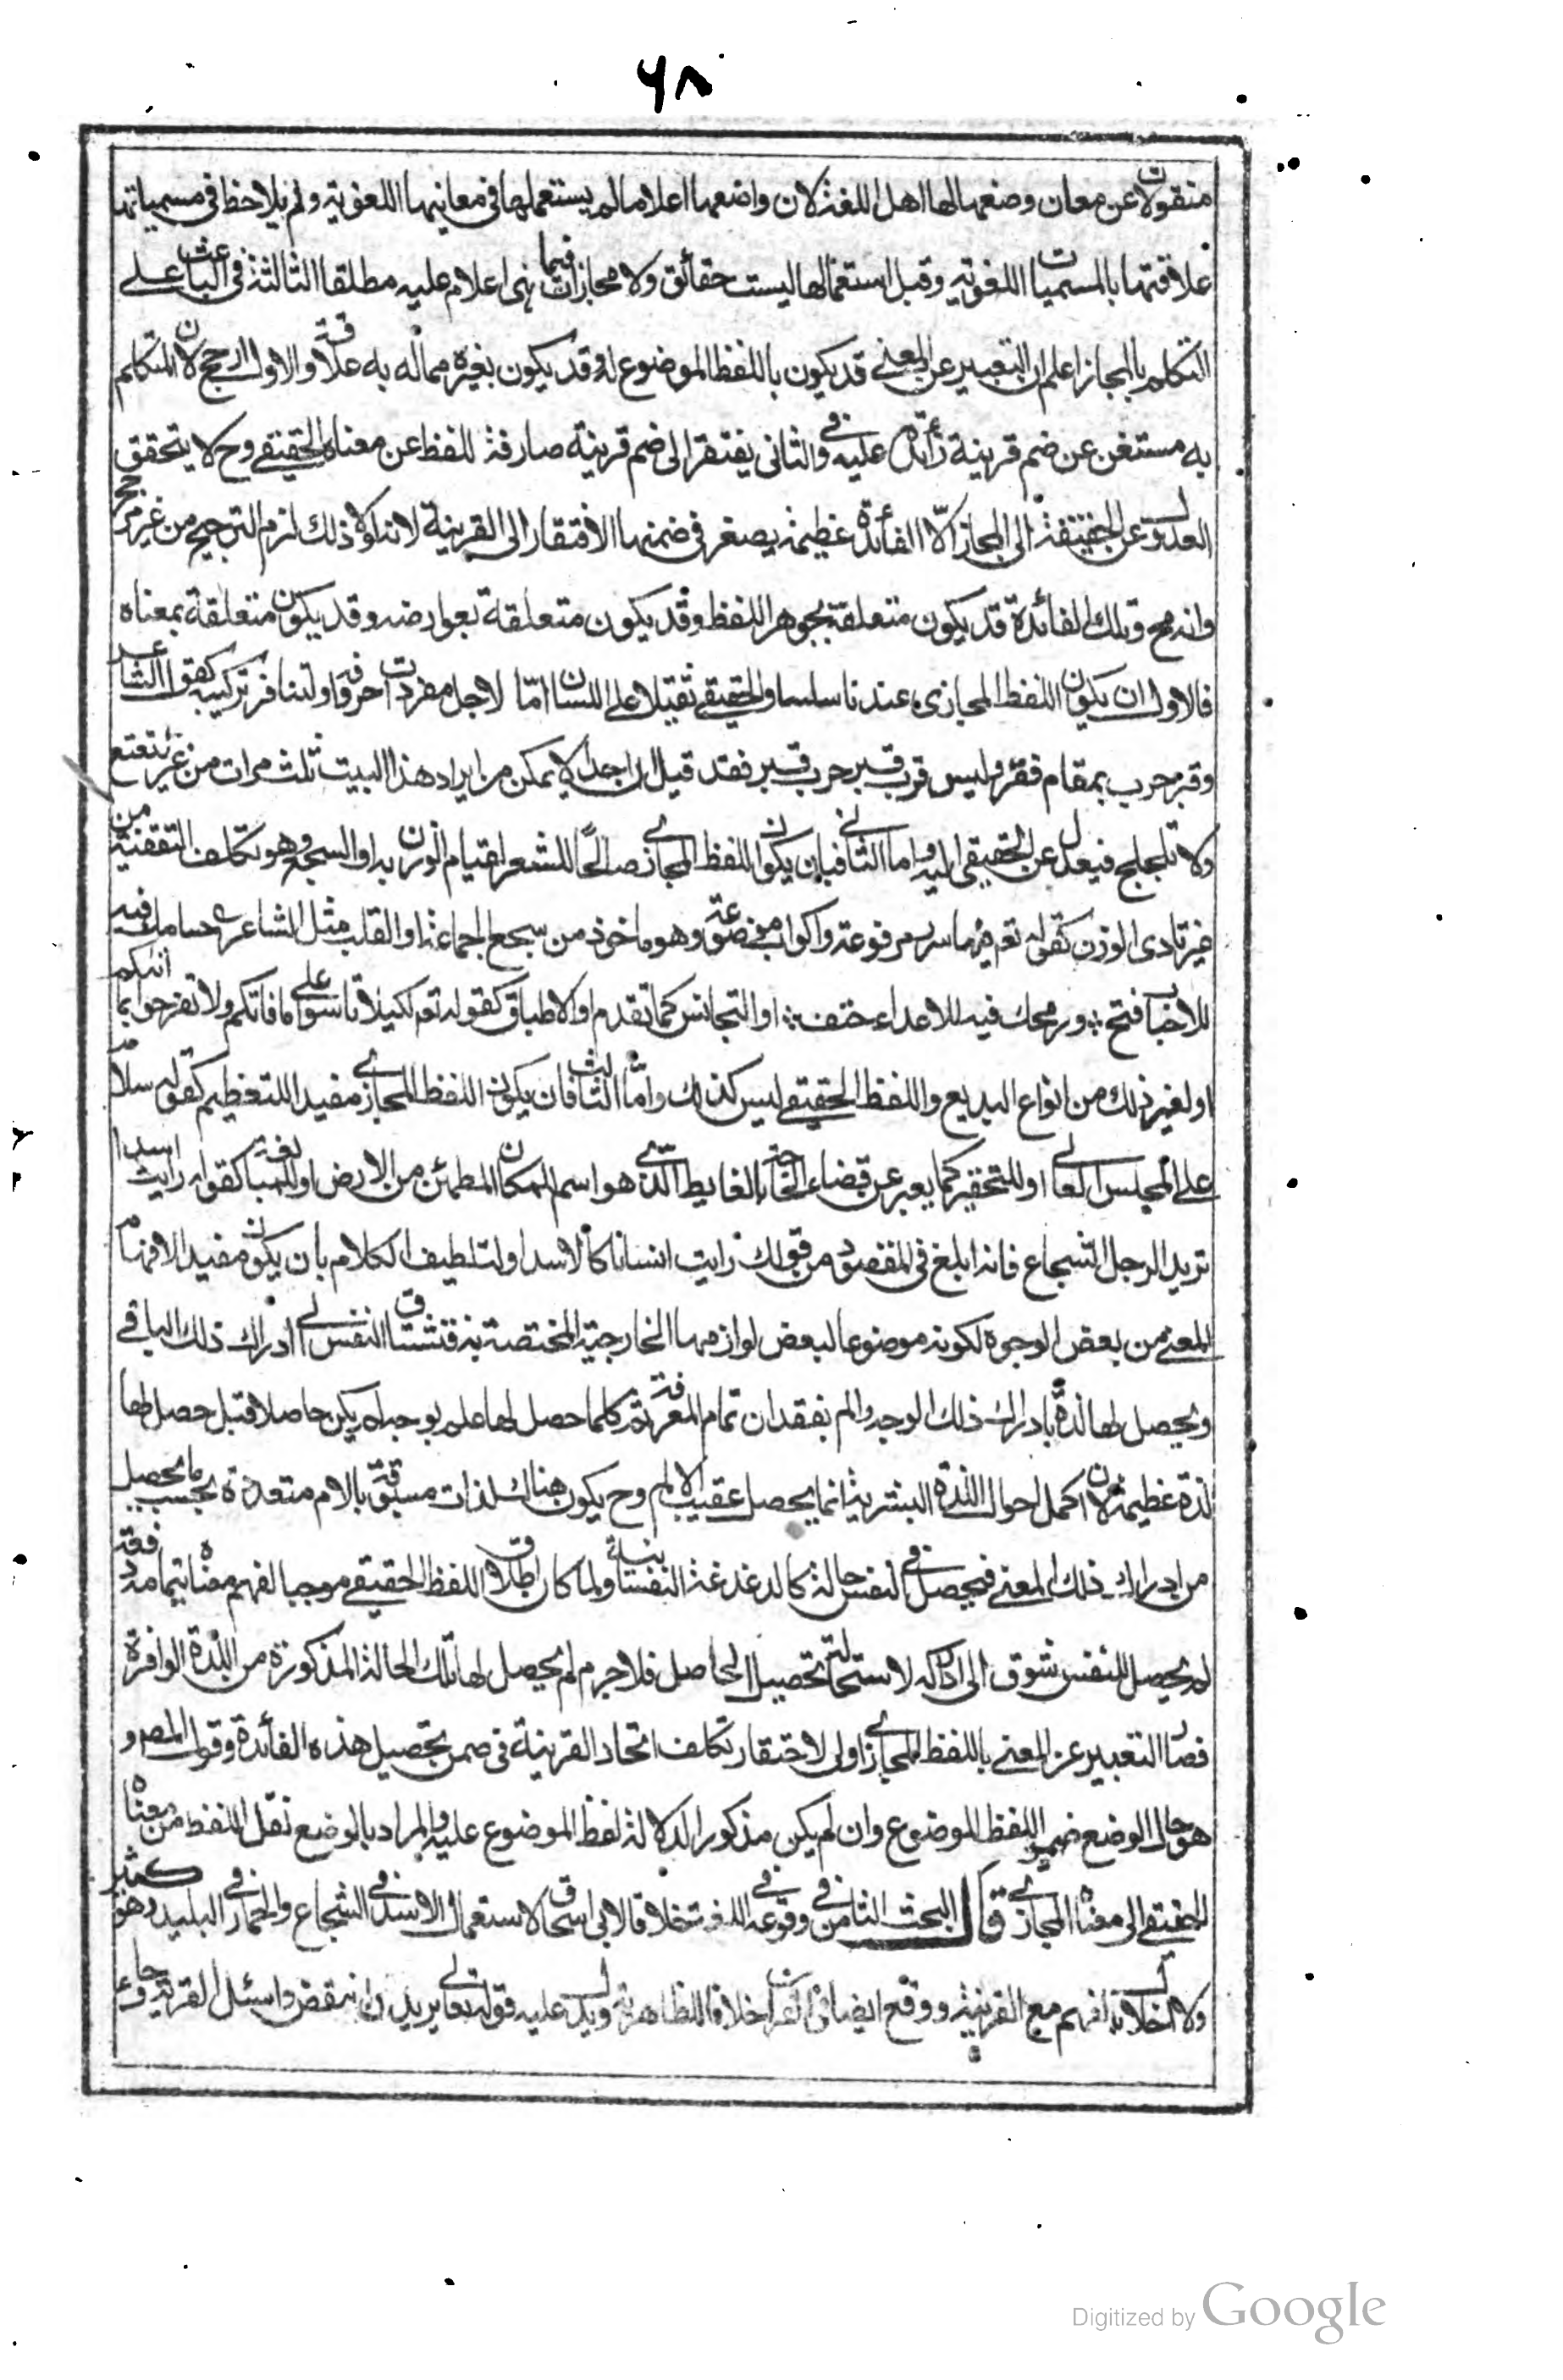 ٦٨
منقولات عن معان وضعها لها اهل اللغة لان واضعها اعلاما لم يستعملها في معانيها اللغوية ولم يلاحظ في مسمياتها
علاقتها بالمسميات اللغوية وقبل استعمالها ليست حقائق ولا مجازات فيما هي اعلام عليه مطلقا الثالثة في الباعث على
التكلم بالمجاز اعلم ان التعبير عن المعنى قد يكون باللفظ الموضوع له وقد يكون بغيره مما له به علاقة والاول ارجح لان المتكلم
به مستغن عن ضم قرينة زائدة عليه والثاني يفتقر الى ضم قرينة صارفة للفظ عن معناه الحقيقي وح لا يتحقق
العدول عن الحقيقة الى المجاز الّا لفائدة عظيمة يصغر في ضمنها الافتقار الى القرينة لانه لولا ذلك لزم الترجيح من غير مرجح
وانه مح وتلك الفائدة قد يكون متعلقة بجوهر اللفظ وقد يكون متعلقة بعوارضه وقد يكون متعلقة بمعناه
فالاول ان يكون اللفظ المجازي عندنا سلسا والحقيقي ثقيلا على اللسان امّا لاجل مفردات حروفه او لتنافر تركيبه كقول الشاعر
وقبر حرب بمقام فقر وليس قرب قبر حرب قبر فقد قيل ان احدا لا يمكن من ايراد هذا البيت ثلث مرات من غير تتعتع
ولا تلجلج فيعدل عن الحقيقي اليه واما الثاني فبان يكون اللفظ المجازي صالحًا للشعر لقيام الوزن به او السجع وهو تكلف التقفية من
غير تادي الوزن كقوله تعم فيها سرر مرفوعة واكواب موضوعة وهو ماخوذ من سجع الحمامة او القلب مثل الشاعر حسامك فيه
للاحباب فتح ورمحك فيه للاعداء حتف او التجانس كما تقدم او الاطباق كقوله تعم لكيلا تاسوا على ما فاتكم ولا تفرحوا بما اتيكم
او لغير ذلك من انواع البديع واللفظ الحقيقي ليس كذلك وامّا الثالث فان يكون اللفظ المجازي مفيدا للتعظيم كقوله سلام
على المجلس العالي او للتحقير كما يعبر عن قضاء الحاجة بالغايط الّذي هو اسم للمكان المطمئن من الارض او للمبالغة كقوله رايت اسدا
تريد الرجل الشجاع فانه ابلغ في المقصود من قولك رايت انسانا كالاسد او لتلطيف الكلام بان يكون مفيدا لافهام
المعنى من بعض الوجوه لكونه موضوعا لبعض لوازمها الخارجية المختصة به فتشتاق النفس الى ادراك ذلك الباقي
ويحصل لها لذة بادراك ذلك الوجه والم بفقدان تمام المعرفة فكلما حصل لها علم بوجه لم يكن حاصلا قبل حصل لها
لذة عظيمة لان اكمل احوال اللذة البشرية انما يحصل عقيب الالم وح يكون هناك لذات مسبوقة بالام متعددة بحسب ما يحصل
من ادراك ذلك المعنى فيحصل في النفس حالة كالدغدغة النفسانية ولما كان اطلاق اللفظ الحقيقي موجبا لفهم معناه بتمامه دفعة
لم يحصل للنفس شوق الى ادراكه لاستحالة تحصيل الحاصل فلا جرم لم يحصل لها تلك الحالة المذكورة من اللذة الوافرة
فصار التعبير عن المعنى باللفظ المجازي اولى لاحتقار تكلف اتحاد القرينة في ضمن تحصيل هذه الفائدة وقول المصم و
هو حال الوضع ضمير اللفظ الموضوع وان لم يكن مذكورا لدلالة لفظ الموضوع عليه والمراد بالوضع نقل اللفظ من معناه
الحقيقي الى معناه المجازي قال البحث الثامن في وقوعه في اللغة خلافا لابي اسحاق لاستعمال الاسد في الشجاع والحمار في البليد وهو كثير
ولا اخلال بالفهم مع القرينة ووقع ايضا في القران خلافا للظاهرية ويدل عليه قوله تعالى يريد ان ينقض واسئل القرية وجاء
Digitized by Google